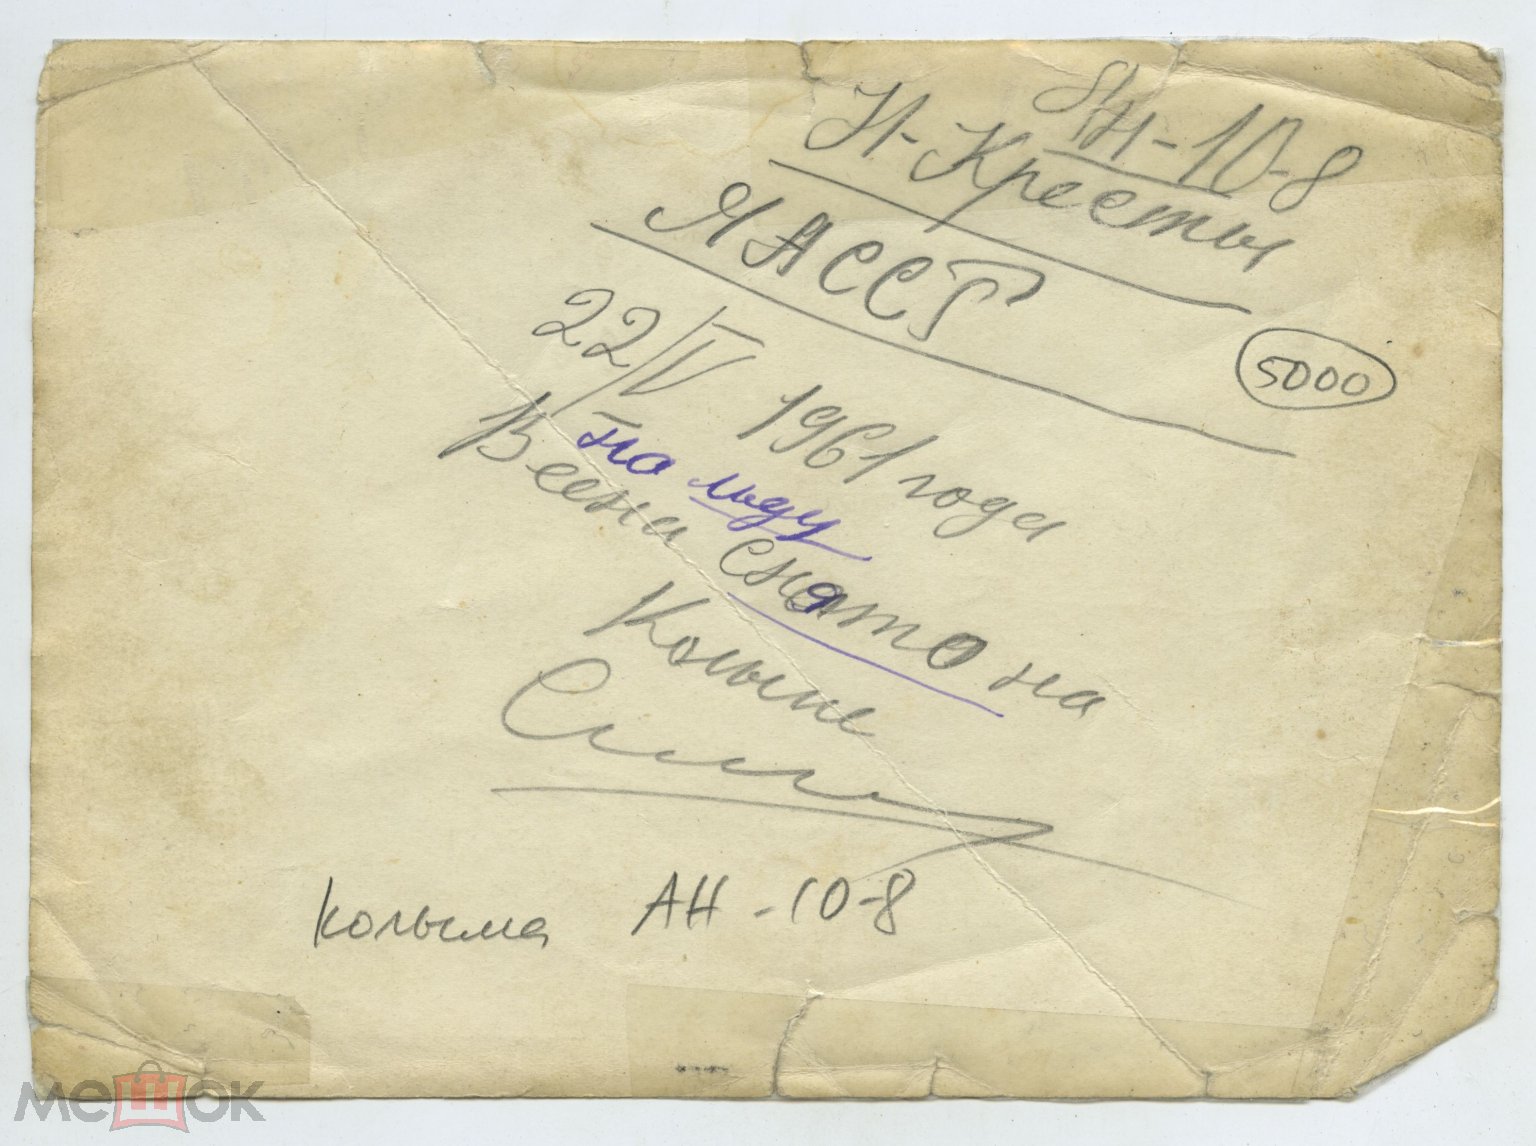 АН-10-8
Н-Кресты
ЯАССР
5000
22/IV 1961 года
на льду
Весна снято на
Колыме
Колыма АН-10-8
мешок